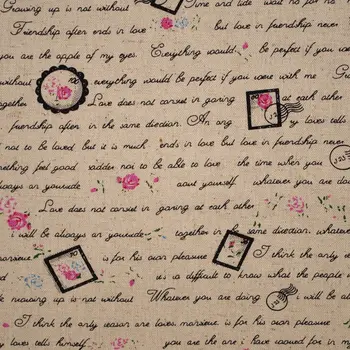 Growing up is not without Time and tide wait no for no
Friendship after ends in love but love in friendship never
you are the apple of my eyes. Everything would be perfect if you were
without everything would be perfect if you were with me
together Love does not consist in gazing at each other
friendship often in the same direction. An ang my loves tells
not to be loved but it is much ends in love but love in friendship never
something feel good sadder not to be able to love the time when you
always an yourside about yourself whatever you are doi
Love does not consist in gazing at each other
i will be always an yourside together in same direction. whatever
is for his own pleasure I think the only
is a difficult to know what the people
growing up is not without Whatever you are doing i will be al
I think the only reason are loves, marxiese is for his own pleasure I think
loves tells himself you are the one i have looked for in my